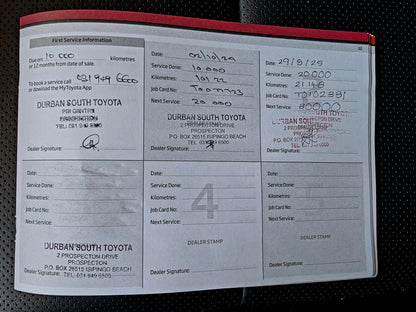 First Service Information
Due on: 10 000 kilometres
or 12 months from date of sale.
To book a service call 031 949 6600
or download the MyToyota App
DURBAN SOUTH TOYOTA
PROSPECTON
TEL: 031 949 6600
Dealer Signature:
Date: 02/10/24
Service Done: 10.000
Kilometres: 10122
Job Card No:
Next Service: 20.000
DURBAN SOUTH TOYOTA
2 PROSPECTON DRIVE
PROSPECTON
P.O. BOX 26515 ISIPINGO BEACH
TEL: 031 949 6600
Dealer Signature:
Date: 29/8/25
Service Done: 20.000
Kilometres: 21146
Job Card No:
Next Service:
PROSPECTON DRIVE
PROSPECTON
Dealer Signature:
Date:
Service Done:
Kilometres:
Job Card No:
Next Service:
DURBAN SOUTH TOYOTA
2 PROSPECTON DRIVE
PROSPECTON
P.O. BOX 26515 ISIPINGO BEACH
TEL: 031 949 6600
Dealer Signature:
Date:
Service Done:
Kilometres:
Job Card No:
Next Service:
4
DEALER STAMP
Dealer Signature:
Date:
Service Done:
Kilometres:
Job Card No:
Next Service:
DEALER STAMP
Dealer Signature: